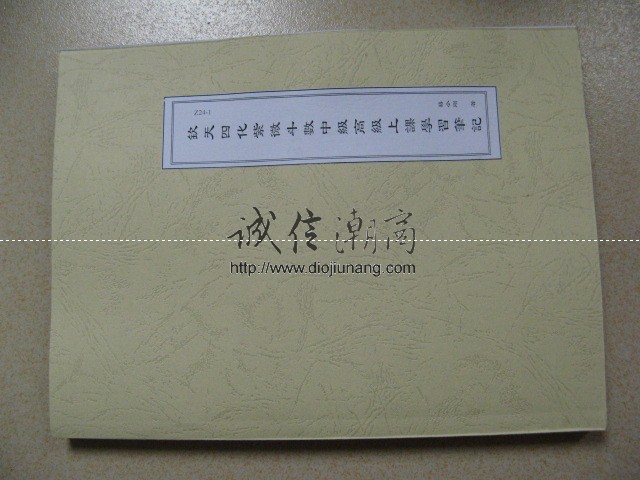 Z24-1
欽天四化紫微斗數中級高級上課學習筆記
诚信潮商
http://www.diojiunang.com